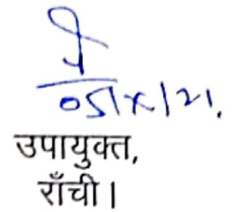 05/x/21.
उपायुक्त,
राँची।